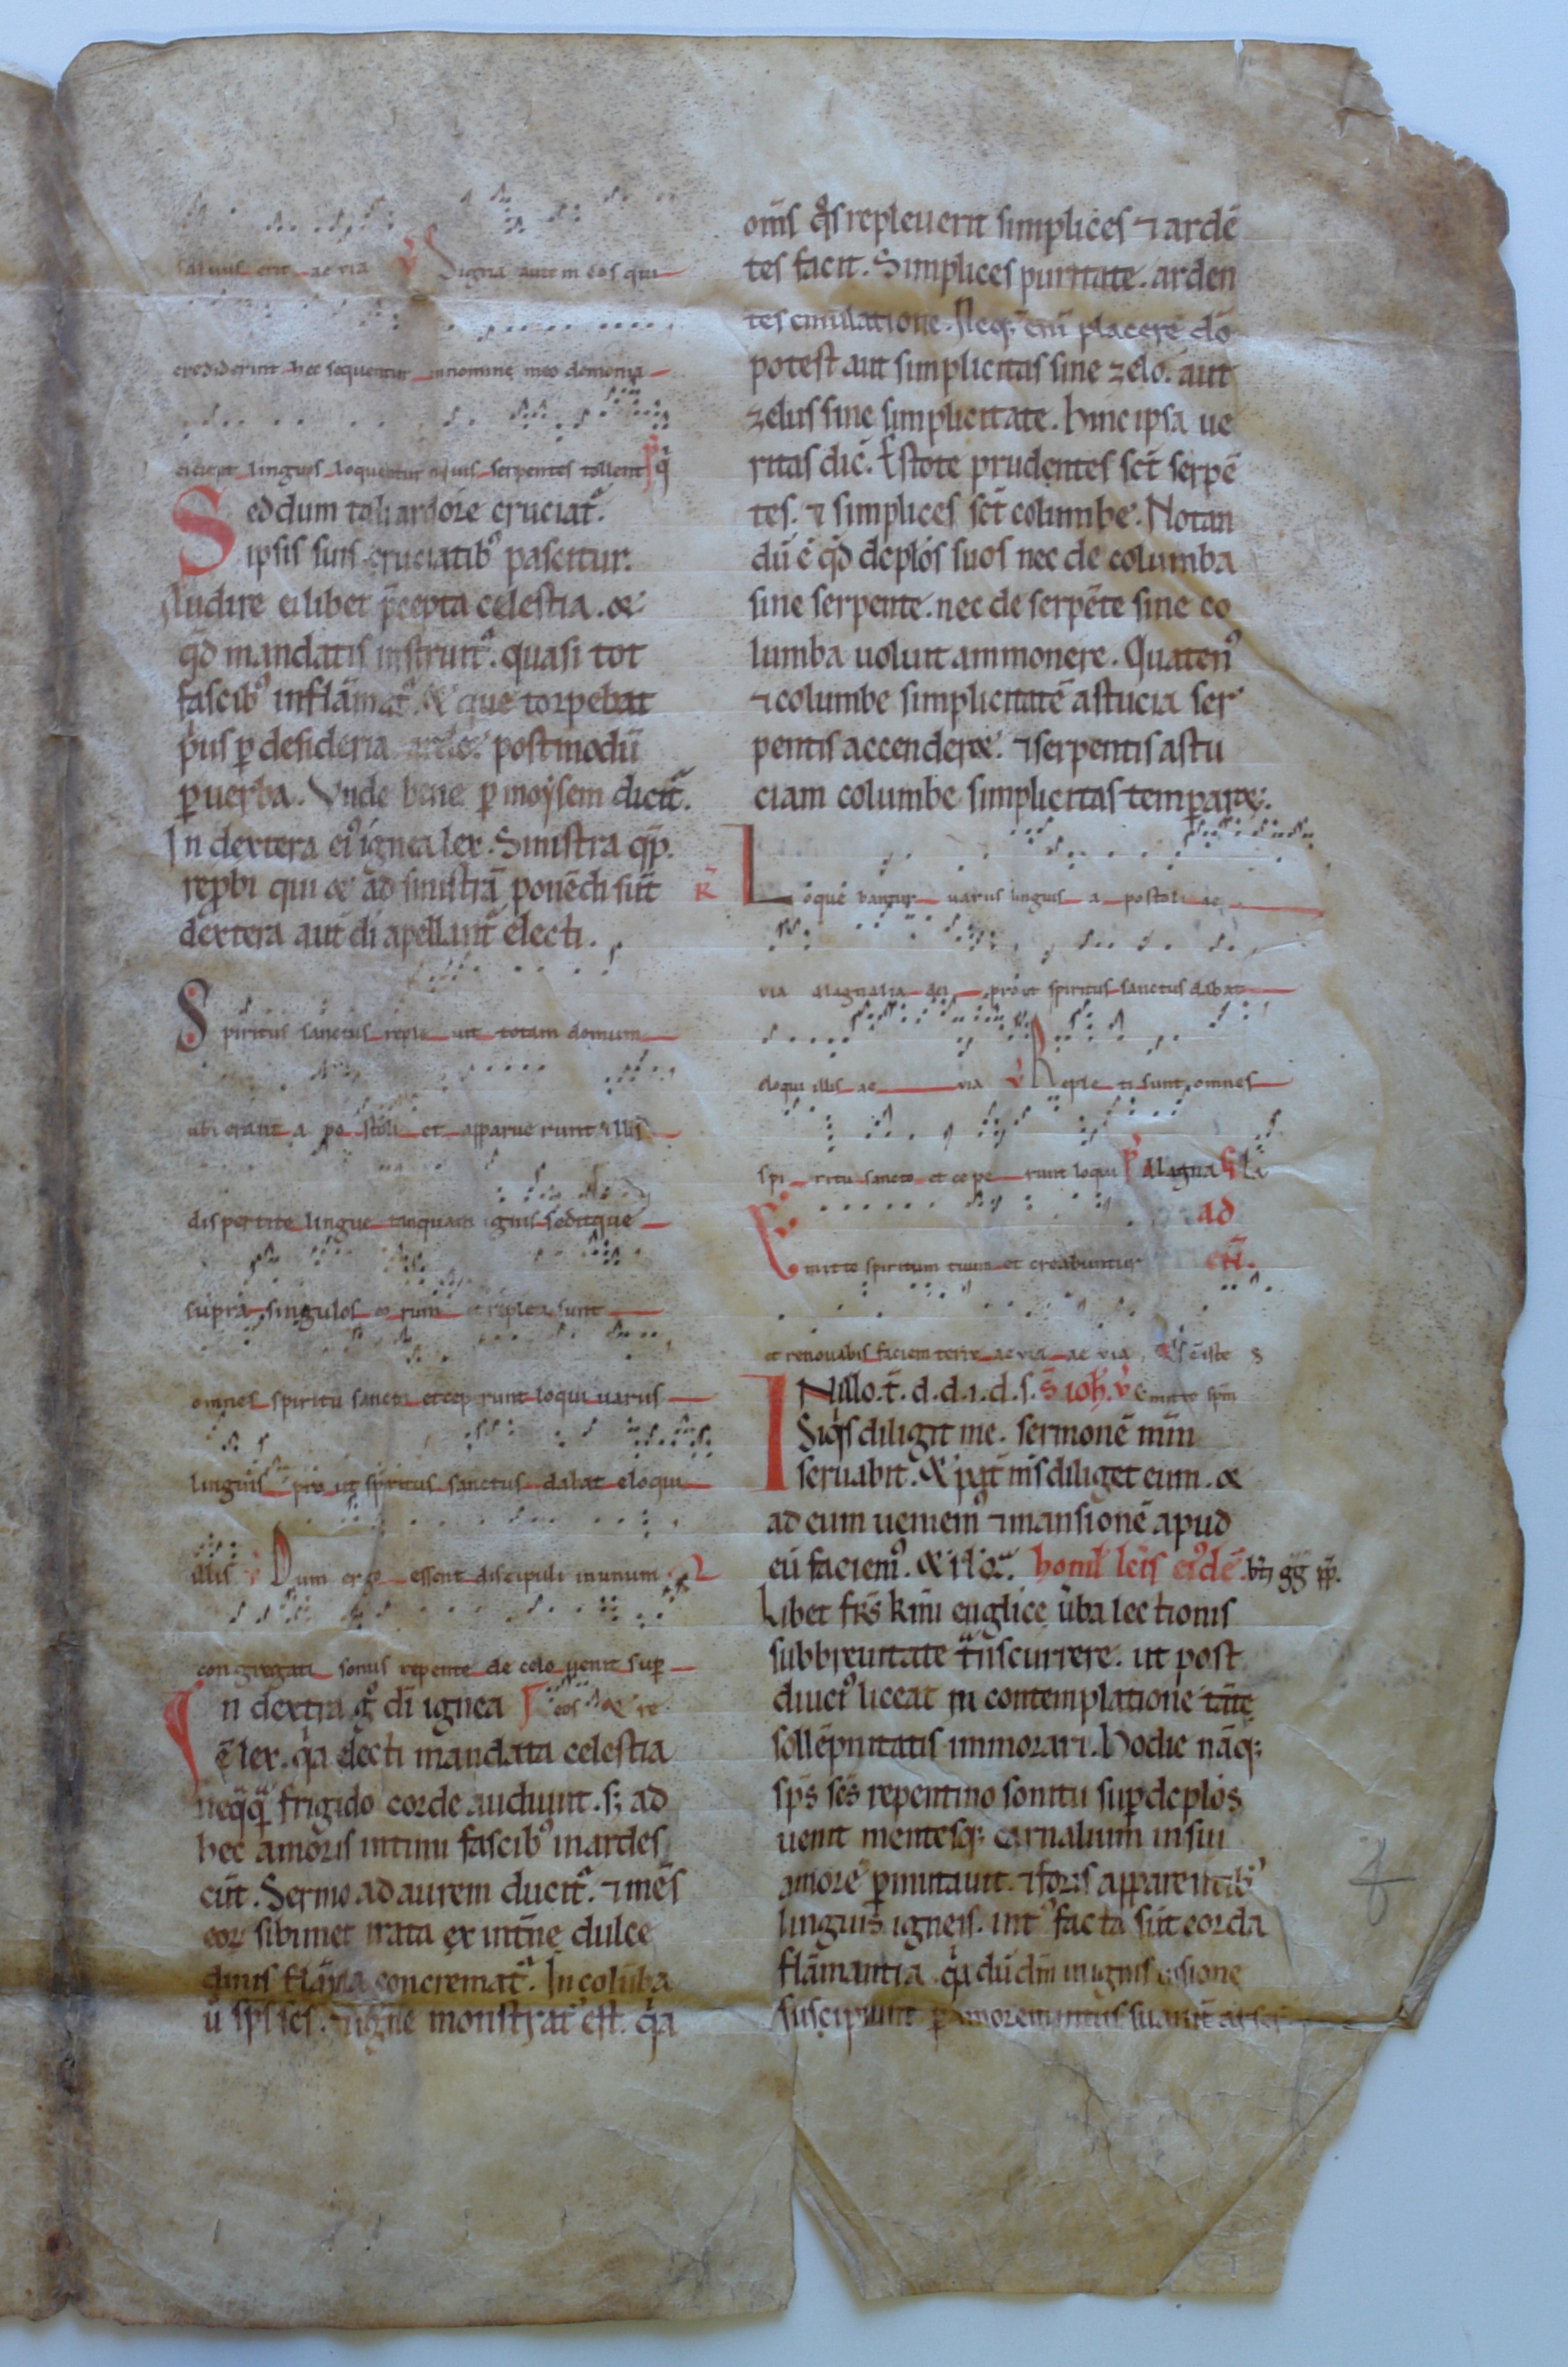 saluus erit aevia V Signa autem eos qui
crediderint hec sequentur in nomine meo demonia
eicient linguis loquentur nouis serpentes tollent P q̄
Sed dum tali ardore cruciat᷑.
ipsis suis cruciatib᷒ pascitur.
Audire ei libet p̄cepta celestia. &
qd̄ mandatis instruit᷑. quasi tot
fascib᷒ inflāmat᷑. & que torpebat
p̄us ꝑ desideria ardet postmodū
ꝑ uerba. Vnde bene ꝑ moẏsem dicit᷑.
In dextera ei᷒ ignea lex. Sinistra qp̄.
rep̄bi qui & ad sinistrā ponēdi sūt
dextera aut̄ di apellant᷑ electi.
Spiritus sanctus repleuit totam domum
ubi erant apostoli et apparuerunt illis
dispertite lingue tanquam ignis seditque
supra singulos eorum et repleti sunt
omnes spiritu sancto et ceperunt loqui uariis
linguis pro ut spiritus sanctus dabat eloqui
illis V Dum ergo essent discipuli in unum
congregati sonus repente de celo uenit sup̄
In dextra g° dī ignea P eos & re
ē lex. qa electi mandata celestia
neqqͣ frigido corde audiunt. s; ad
hec amoris intimi fascib᷒ inardes
cūt. Sermo ad aurem ducit᷑. ⁊ mēs
eor sibimet irata ex int̄ne dulce
dinis flāma concremat᷑. In colūba
u̇ sp̄s sc̄s. ⁊ igne monstrat᷑ est. qa
om̄s q̊s repleuerit simplices ⁊ ardē
tes facit. Simplices puritate. arden
tes emulatione. Neq; eni placere dō
potest aut simplicitas sine zelo. aut
zelus sine simplicitate. Hinc ipsa ue
ritas dic̄. Estote prudentes sc̄t serpē
tes. ⁊ simplices sc̄t columbe. Notan
dū ē qd̄ dcpl̄os suos nec de columba
sine serpente. nec de serpēte sine co
lumba uoluit ammonere. Quaten᷒
⁊ columbe simplicitatē astucia ser
pentis accenderet. ⁊ serpentis astu
ciam columbe simplicitas temꝑaret.
R̄ Loquebantur uariis linguis apostoli ae
via Magnalia dei prout spiritus sanctus dabat
eloqui illis ae via V Repleti sunt omnes
spiritu sancto et ceperunt loqui P Magna
ad
Emitte spiritum tuum et creabuntur
et renouabis faciem terre ae via ae via
IN illo. t̄. d. d. i. d. s. S IOH. V Emitte spm̄
Siq̄s diligit me. sermonē mm̄
seruabit. & pat̄ ms̄ diliget eum. &
ad eum ueniem᷒ ⁊ mansionē apud
eū faciem᷒. & rlq̄. homl̄ lc̄īs ei᷒dē. bt̄i gḡ pp̄.
Libet frs̄ km̄i euglice u̇ba lectionis
sub breuitate t̄nscurrere. ut post
diuci᷒ liceat in contemplatione tāte
sollēpnitatis immorari. Hodie nāq;
sp̄s sc̄s repentino sonitu sup̄ dcpl̄os
uenit mentesq; carnalium in sui
amorē ꝑmutauit. ⁊ foris apparentib᷒
linguis igneis. int᷒ facta sūt corda
flāmantia. qa dū dm̄ in ignis uisione
suscipiunt ꝑ amorem intus suauit̄ arser